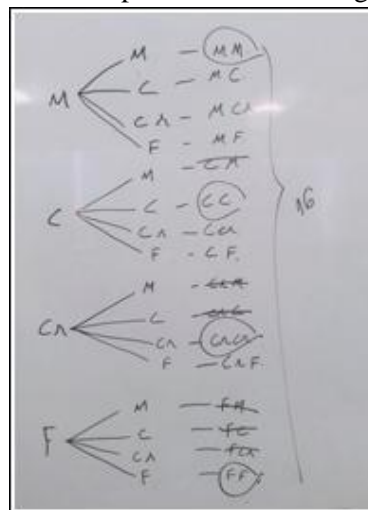 M - MM
C - MC
M CA - MCA
F - MF
M - CM
C C - CC
CA - CCA
F - CF.
16
M - CAM
C - CAC
CA CA - CACA
F - CAF.
M - FM
F C - FC
CA - FCA
F - FF